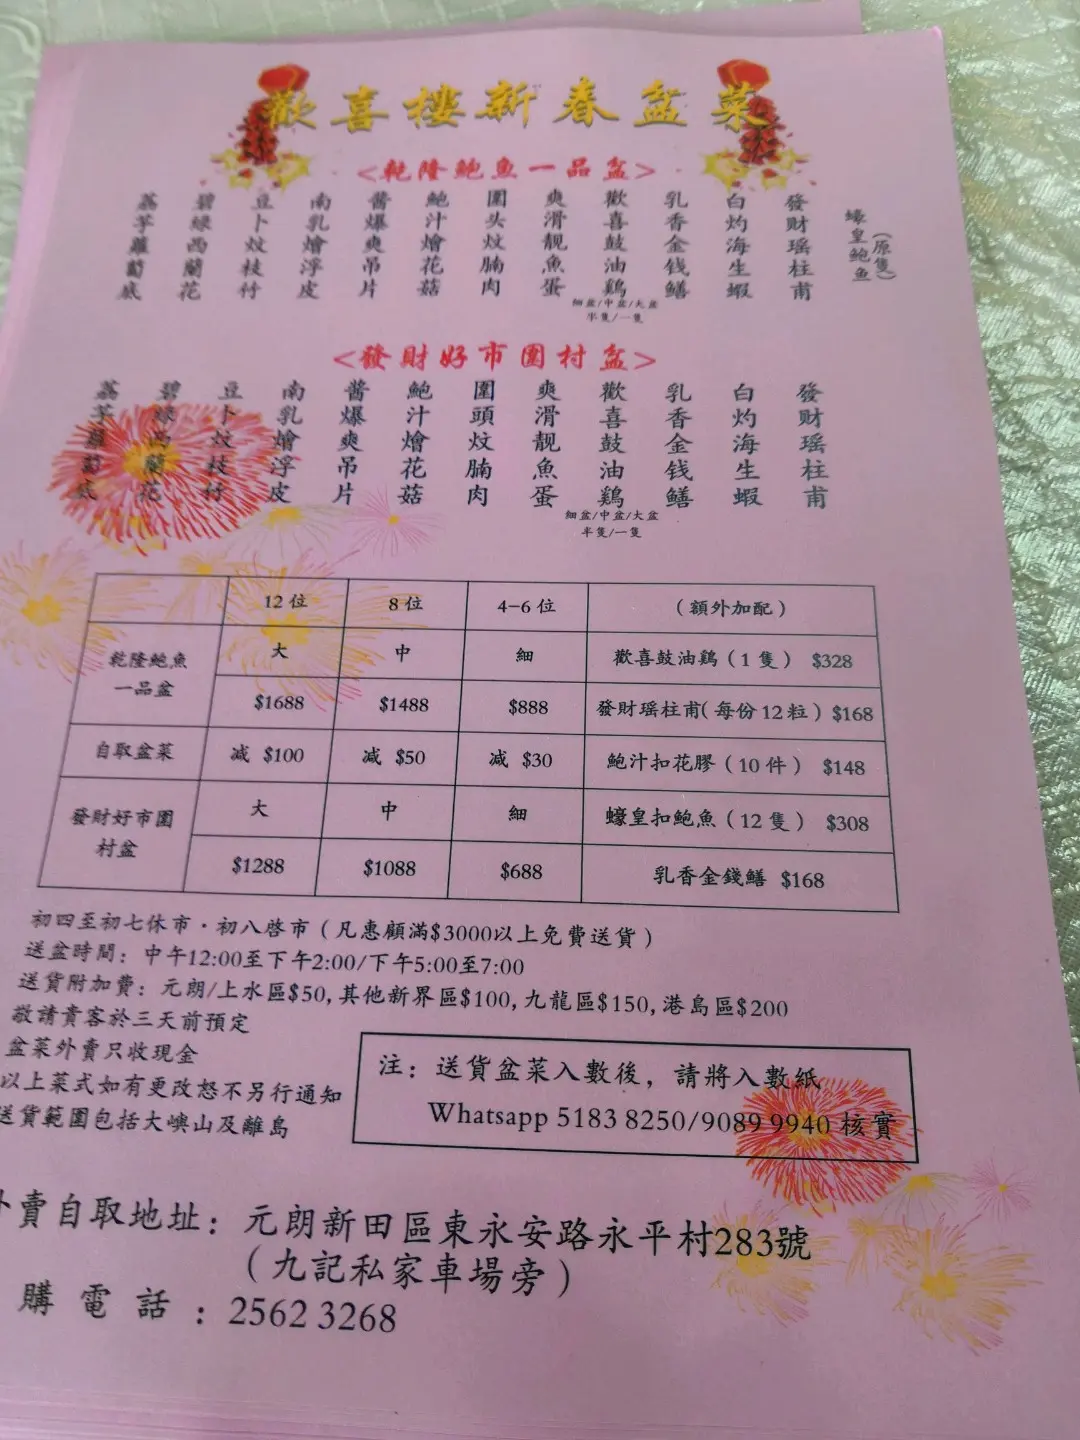 歡喜樓新春盆菜
<乾隆鮑魚一品盆>
蠔皇鮑魚(原隻)
發財瑶柱甫
白灼海生蝦
乳香金钱鱔
歡喜鼓油鷄
細盆/中盆/大盆
半隻/一隻
爽滑靓魚蛋
圍头炆腩肉
鮑汁燴花菇
醬爆爽吊片
南乳燴浮皮
豆卜炆枝竹
碧綠西蘭花
荔芋蘿蔔底
<發財好市圍村盆>
發財瑶柱甫
白灼海生蝦
乳香金钱鱔
歡喜鼓油鷄
細盆/中盆/大盆
半隻/一隻
爽滑靓魚蛋
圍頭炆腩肉
鮑汁燴花菇
醬爆爽吊片
南乳燴浮皮
豆卜炆枝竹
碧綠西蘭花
荔芋蘿蔔底
12 位 8 位 4-6 位 (額外加配)
乾隆鮑魚一品盆 大 中 細 歡喜鼓油鷄(1 隻) $328
$1688 $1488 $888 發財瑶柱甫(每份 12 粒) $168
自取盆菜 减 $100 减 $50 减 $30 鮑汁扣花膠(10 件) $148
發財好市圍村盆 大 中 細 蠔皇扣鮑魚(12 隻) $308
$1288 $1088 $688 乳香金錢鱔 $168
初四至初七休市·初八啓市(凡惠顧滿$3000以上免費送貨)
送盆時間：中午12:00至下午2:00/下午5:00至7:00
送貨附加費：元朗/上水區$50,其他新界區$100,九龍區$150,港島區$200
敬請貴客於三天前預定
盆菜外賣只收現金
以上菜式如有更改怒不另行通知
送貨範圍包括大嶼山及離島
注：送貨盆菜入數後，請將入數紙
Whatsapp 5183 8250/9089 9940 核實
外賣自取地址：元朗新田區東永安路永平村283號
(九記私家車場旁)
購電話：2562 3268